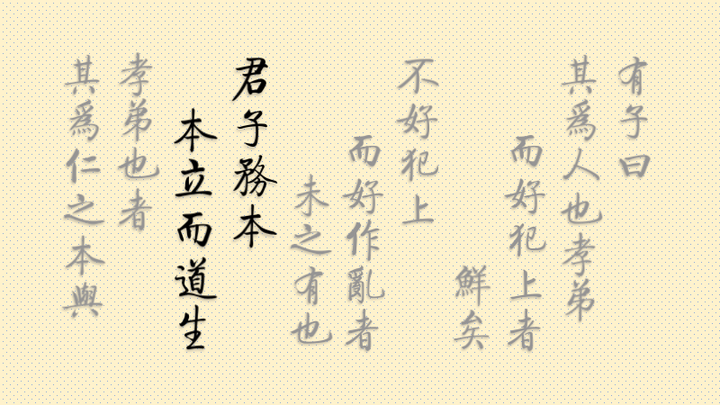 有子曰
其為人也孝弟
而好犯上者
鮮矣
不好犯上
而好作亂者
未之有也
君子務本
本立而道生
孝弟也者
其為仁之本與